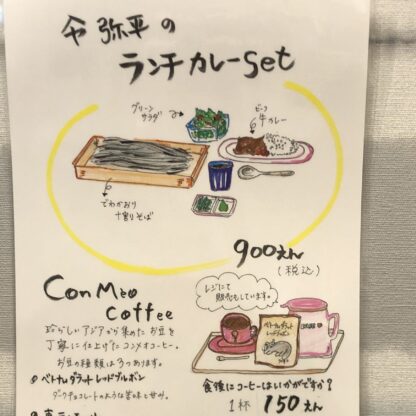 弥平の
ランチカレーSet
グリーン
サラダ
ビーフ
牛カレー
でわかおり
十割りそば
900えん
(税込)
ConMèo
Coffee
珍らしいアジアから集めたお豆を
丁寧に仕上げたコンメオコーヒー。
お豆の種類は3つあります。
ベトナムダラットレッドブルボン
ダークチョコレートのような苦味と甘み。
レジにて
販売もしています。
ベトナムダラット
レッドブルボン
食後にコーヒーはいかがですか?
1杯 150えん